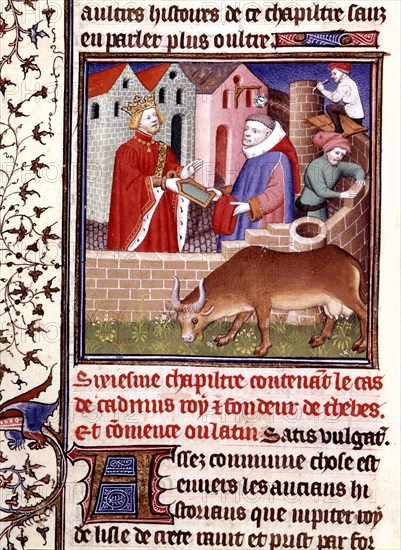 aultres histoires de ce chapiltre sanz
en parler plus oultre.
Sixiesme chapiltre contenãt le cas
de cadmus roy ⁊ fondeur de thebes.
Et cõmence ou latin. Satis vulgat̃.
Assez commune chose est
envers les anciens hi
storians que iupiter roy
de lisle de crete ravit et prist par for